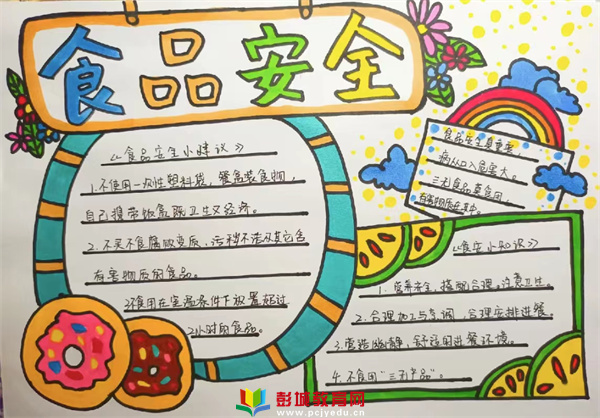 食品安全
《食品安全小建议》
1.不使用一次性塑料袋,餐盒装食物,
自己携带饭盒既卫生又经济。
2.不买不食腐败变质、污秽不洁及其它含
有害物质的食品。
3不食用在室温条件下放置超过
2小时的食品。
食品安全最重要,
病从口入危害大。
三无食品莫食用,
有害物质在其中。
《食安小知识》
1.营养齐全,搭配合理,注意卫生。
2.合理加工与烹调,合理安排进餐。
3.营造幽静,舒适的进餐环境。
4.不食用"三无产品"。
彭城教育网
www.pcjyedu.cn